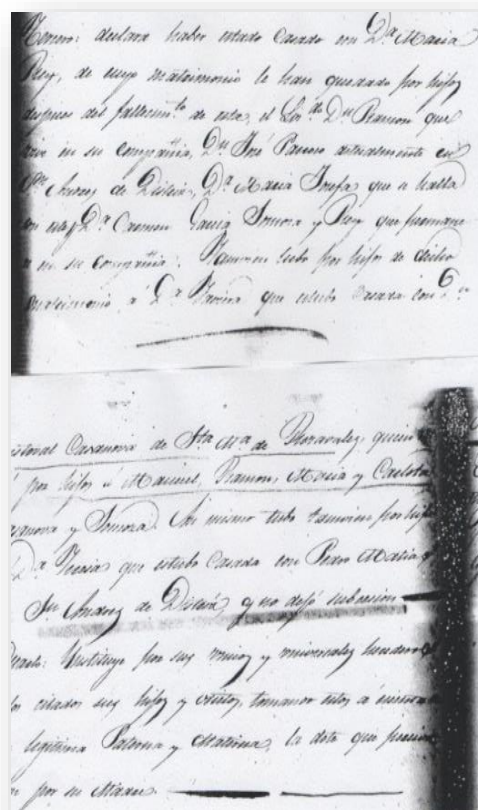 Tercero: declara haber estado Casado con D.ª Maria
Rey, de cuyo matrimonio le han quedado por hijos
despues del fallecim.to de esta, el Lic.do D.n Ramon que
vive en su compañia, D.n José Pacoco actualmente en
S.n Andres de Distriz, D.ª Maria Josefa que se halla
con este y D.ª Carmen Garcia Somoza y Rey que permane
ce en su Compañia. Tambien tubo por hijos de dicho
matrimonio á D.ª que estubo Casada con D.n
Casanova de Sta. Ma. de quien
por hijos á Manuel, Ramon, Maria y Carlota
Casanova y Somoza. Asi mismo tubo tambien por hija
D.ª Teresa que estubo Casada con Pedro Maria
S.n Andres de y no dejó subcesion
Cuarto: Ynstituye por sus unicos y universales herederos
los citados sus hijos y nietos, tomando estos á
legitima Paterna y Materna, la dote que
por su Madre.